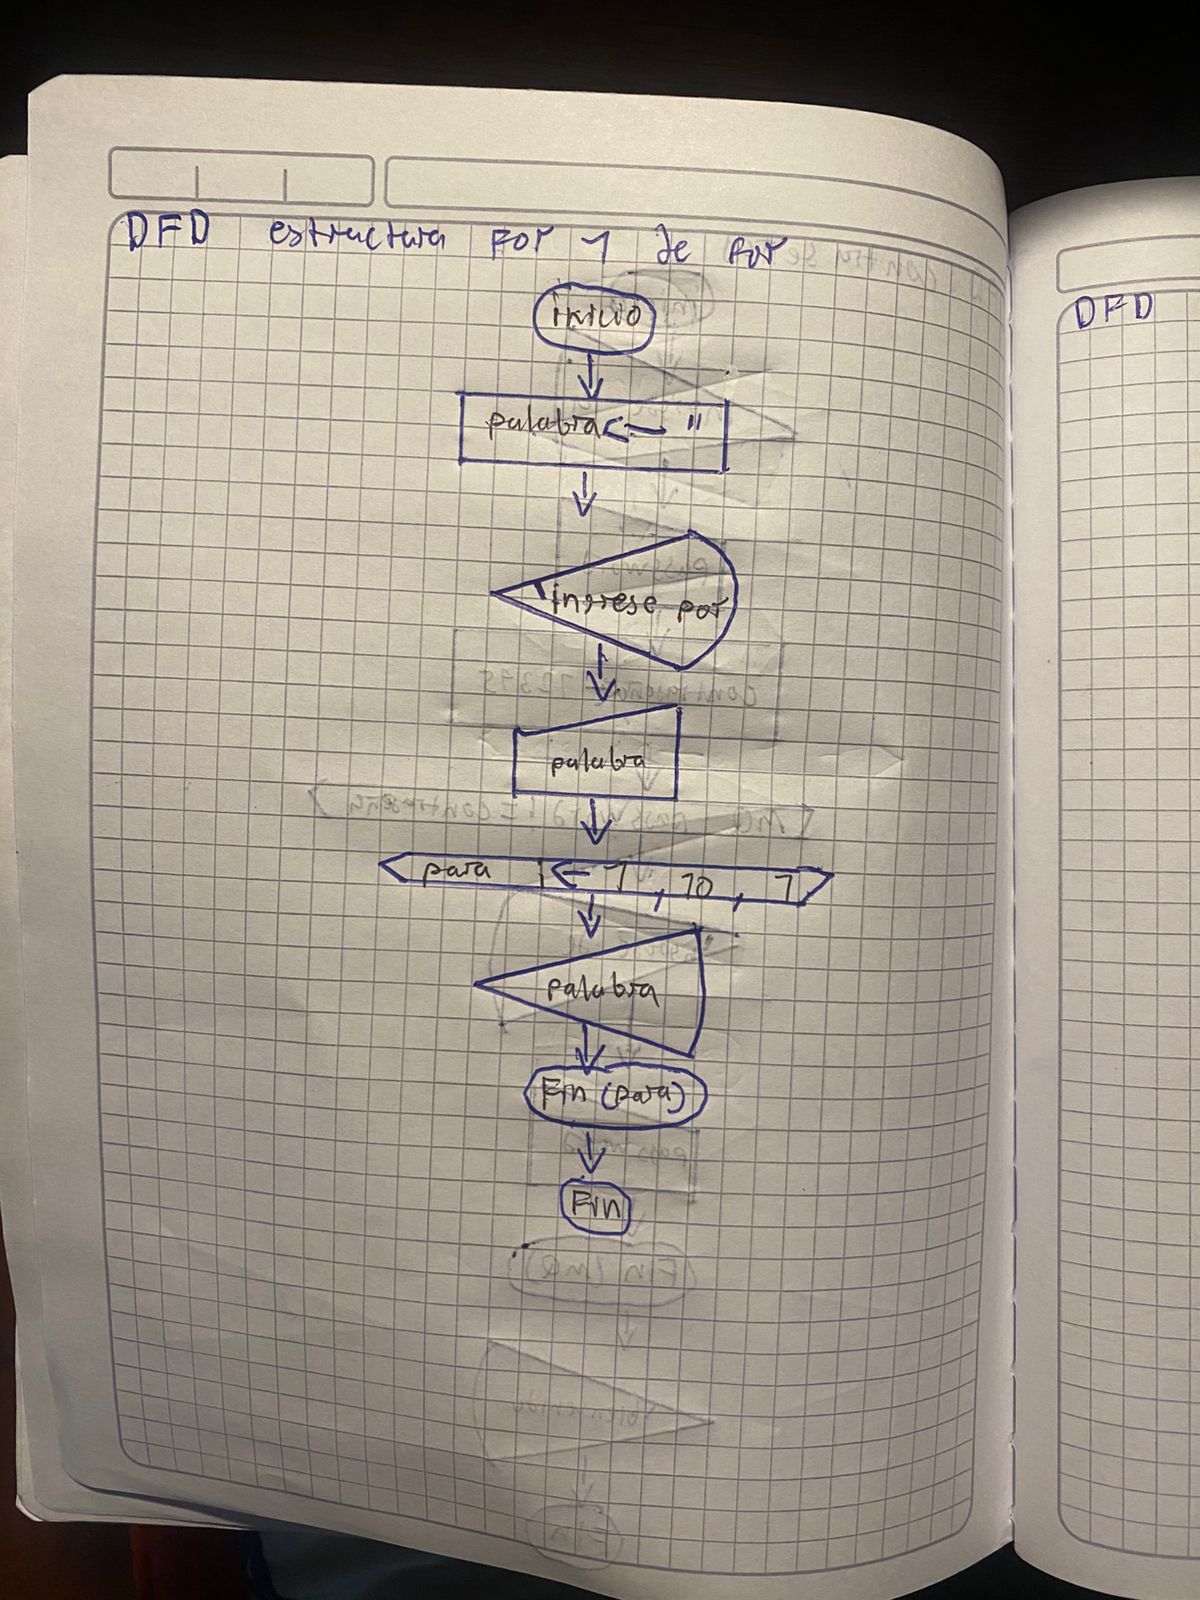 DFD estructura FOR 1 de for
inicio
palabra ← "
ingrese por
palabra
para i ← 1, 10, 1
palabra
Fin (para)
Fin
DFD